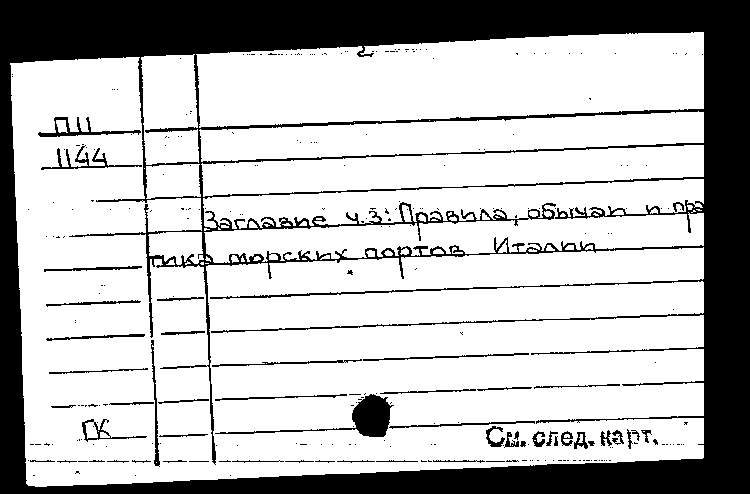 2
П11
1144
Заглавие ч.3: Правила, обычаи и пра
тика морских портов Италии
ГК
См. след. карт.